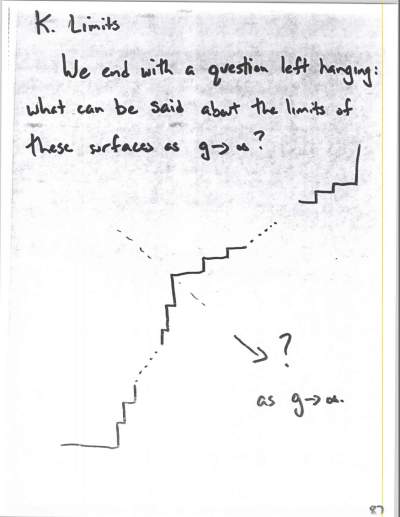 K. Limits
We end with a question left hanging:
what can be said about the limits of
these surfaces as g→∞?
?
as g→∞.
87